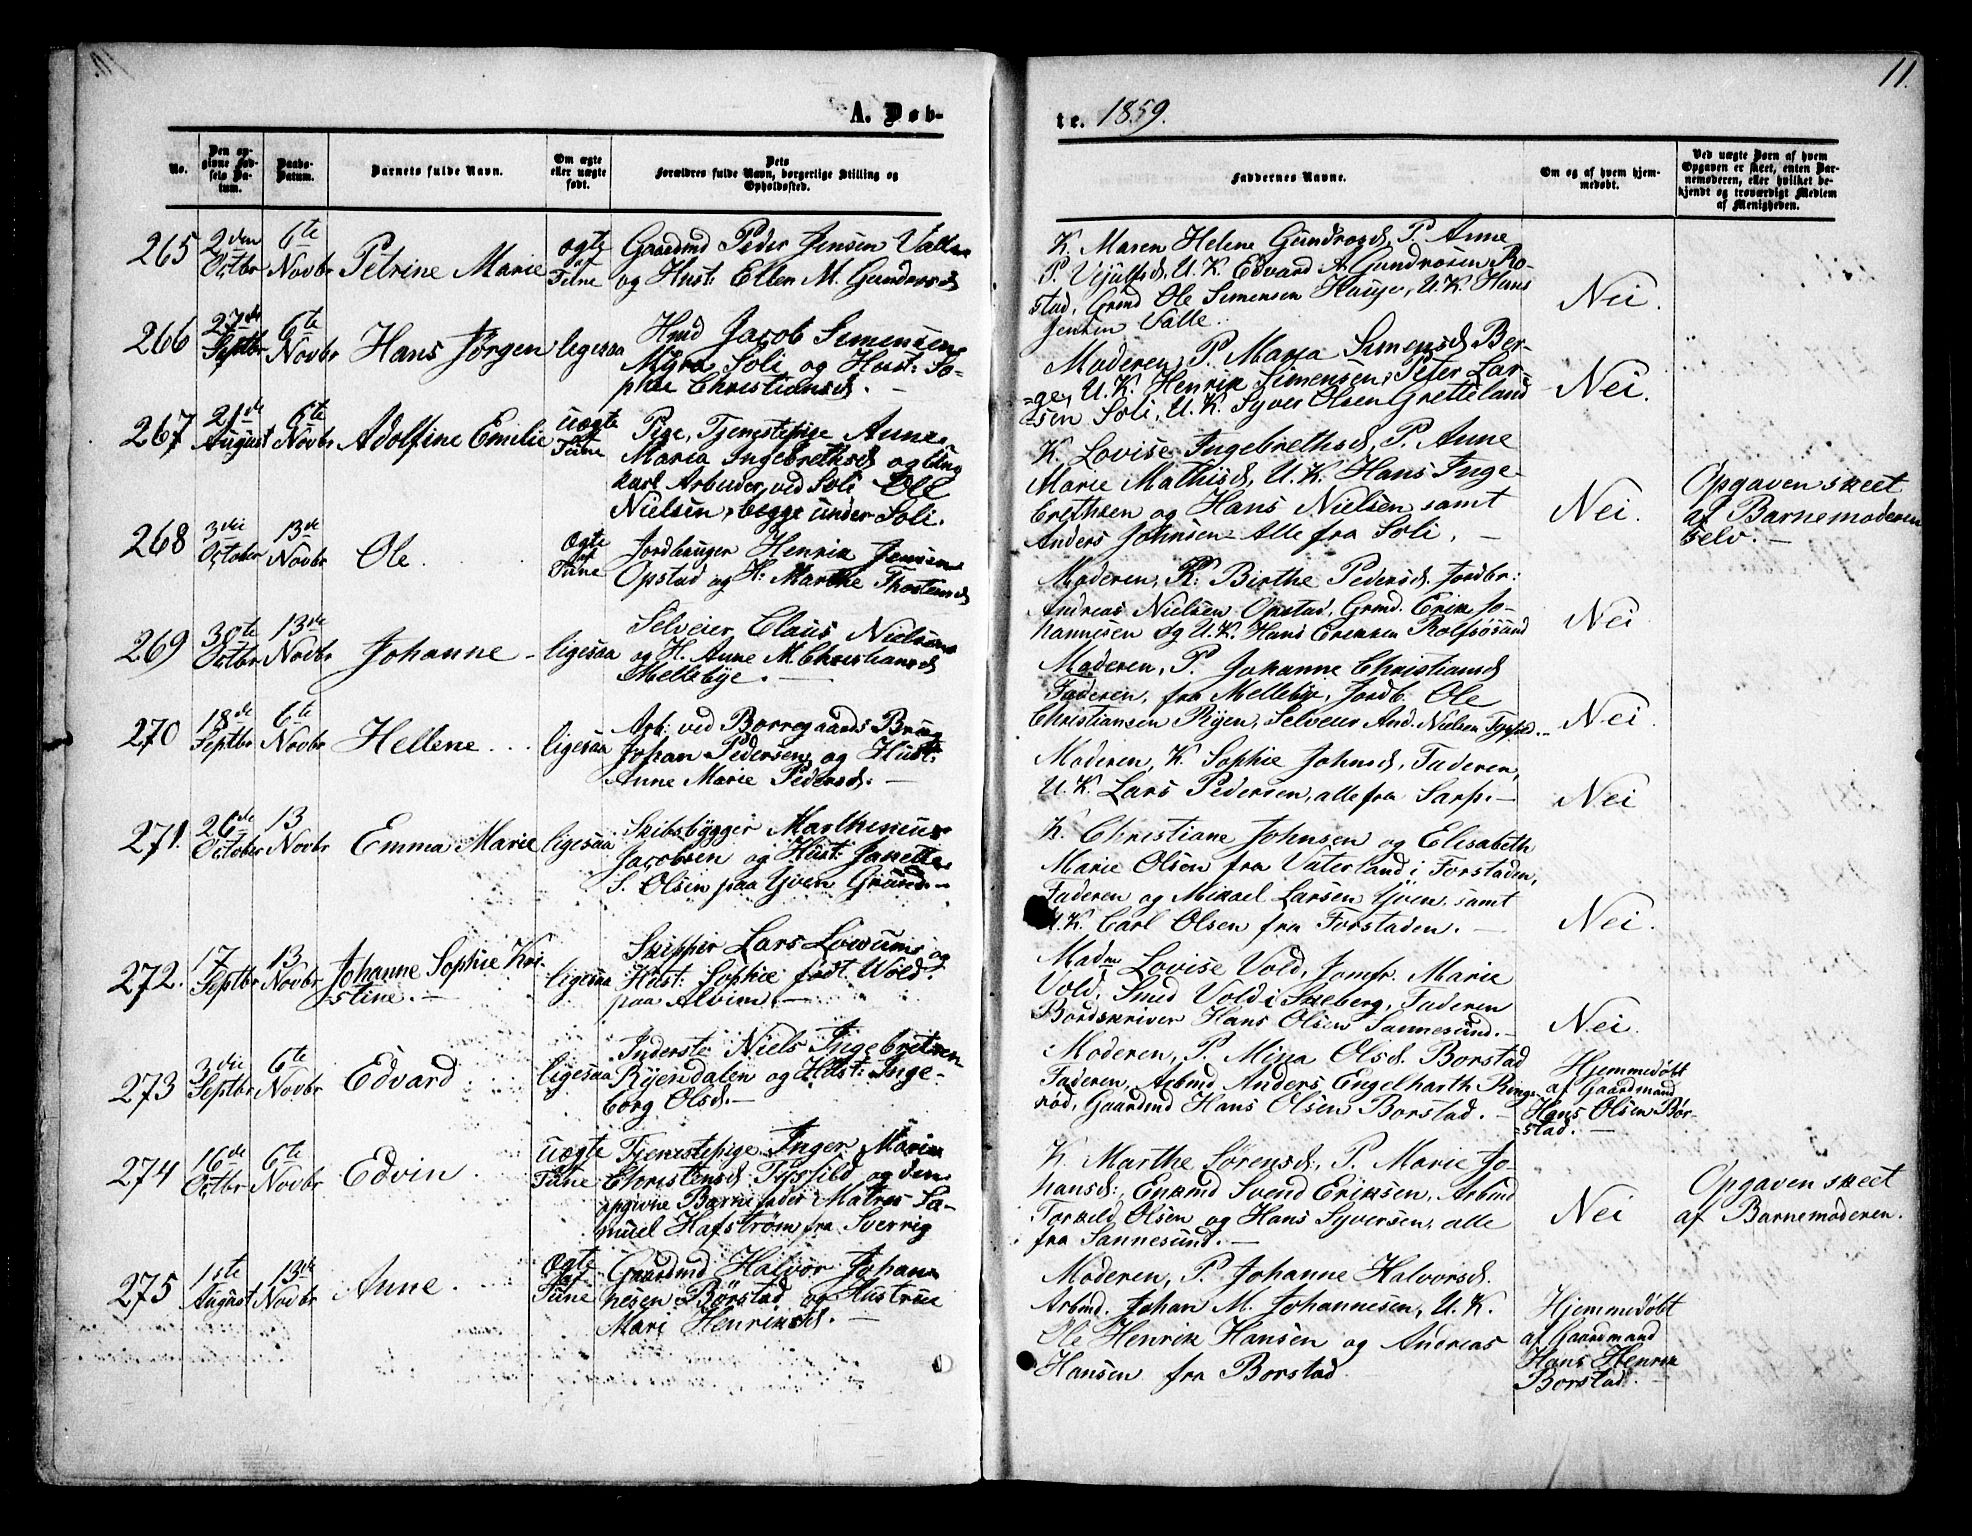 11.
A. Døb-
te. 1859.
No.
Den op-
givne Fød-
sels Da-
tum.
Daabs-
Datum.
Barnets fulde Navn.
Om ægte
eller uægte
født.
Dets
Forældres fulde Navn, borgerlige Stilling og
Opholdssted.
Faddernes Navne.
Om og af hvem hjem-
medøbt.
Ved uægte Børn af hvem
Opgaven er skeet, enten Bar-
nemoderen, eller hvilket be-
kjendt og troværdigt Medlem
af Menigheden.
265
2den
Octbr
6te
Novbr
Petrine Marie
Ægte
af
Tune
Gaardmd Peder Jensen Valle
og Hust: Ellen M. Gundrosd
K. Maren Helene Gundrosd, P. Anne
P. Vejulfsd, U.K. Edvard A. Gundrosen Ro-
stad, Grmd Ole Simensen Hauge, U.K. Hans
Jensen Valle.
Nei.
266
27de
Septbr
6te
Novbr
Hans Jørgen
ligesaa
Hmd Jacob Simensen
Myra Soli og Hust: So-
phie Christiansd. —
Moderen, P. Maria Simensd. Ber-
ge, U.K. Henrik Simensen, Peter Lar-
sen Soli, U.K. Syver Olsen Gretteland
Nei.
267
21de
August
6te
Novbr
Adolfine Emilie
Uægte
af
Tune
Pige, Tjenestepige Anne
Maria Ingebrethsd og Ung
karl Arbeider ved Soli Ole
Nielsen, begge under Soli.
K. Lovise Ingebrethsd, P. Anne
Marie Mathisd, U.K. Hans Inge-
brethsen og Hans Nielsen samt
Anders Johnsen - Alle fra Soli.
Nei.
Opgaven skeet
af Barnemoderen
selv. —
268
3die
October
13de
Novbr
Ole
Ægte
af
Tune
Jordbruger Henrik Jensen
Opstad og H: Marthe Thostensd
Moderen, K: Birthe Pedersd, Jordbr:
Andreas Nielsen Opstad, Grmd. Erik Jo-
hannesen og U.K. Hans Eriksen Rolfsøsund
Nei
269
30te
Octbr
13de
Novbr
Johanne -
ligesaa
Selveier Claus Nielsen
og H. Anne M. Christiansd
Mellebye. —
Moderen, P. Johanne Christiansd
Faderen, fra Mellebye, Jordb. Ole
Christiansen Ryen, Selveier And. Nielsen
Nei.
270
18de
Septbr
6te
Novbr
Hellene
ligesaa
Arb: ved Borregaards Brug
Johan Pedersen og Hust:
Anne Marie Pedersd. —
Moderen, K. Sophie Johnsd, Faderen,
U.K. Lars Pedersen, alle fra Sarp. —
Nei
271.
26de
October
13
Novbr
Emma Marie
ligesaa
Skibsbygger Marthinius
Jacobsen og Hust: Janette
S. Olsen paa Yven Grund. —
K. Christiane Johnsen og Elisabeth
Marie Olsen fra Vaterland i Forstaden,
Faderen og Mikael Larsen Yven, samt
U.K. Carl Olsen fra Forstaden. —
Nei.
272.
17
Septbr
13
Novbr
Johanne Sophie Kri-
stine. —
ligesaa
Skipper Lars Lowum og
Hust: Sophie født Wold
paa Alvim. —
Madm Lovise Vold, Jomfr. Marie
Vold, Smed Vold i Skeberg, Faderen
Bordskriver Hans Olsen Sannesund. —
Nei.
273
3die
Septbr
6te
Novbr
Edvard
ligesaa
Inderste Niels Ingebretsen
Ryendalen og Hust: Inge-
borg Olsd. —
Moderen, P. Mina Olsd. Borstad
Faderen, Arbmd Anders Engelharth Rings-
rød, Gaardmd Hans Olsen Borstad. —
Hjemmedøbt
af Gaardmand
Hans Olsen Bor-
stad. —
274
16de
Octbr
6te
Novbr
Edvin
Uægte
Tune
Tjenestepige Inger Marie
Christensd og den
opgivne Barnefader Matres Sa-
muel Hafstrøm fra Sverrig
K. Marthe Sørensd, P. Marie Jo-
hansd: Enkmd Svend Eriksen, Arbmd
Torkeld Olsen og Hans Syversen, alle
fra Sannesund. —
Nei
Opgaven skeet
af Barnemoderen.
275
1ste
August
13de
Novbr
Anne
Ægte
af
Tune
Gaardmd Halvor Johan
nesen Børstad og Hustrue
Mari Henriksd. —
Moderen, P. Johanne Halvorsd.
Arbmd. Johan M. Johannesen, U.K.
Ole Henrik Hansen og Andreas
Hansen fra Borstad
Hjemmedøbt
af Gaardmand
Hans Henrik
Borstad.